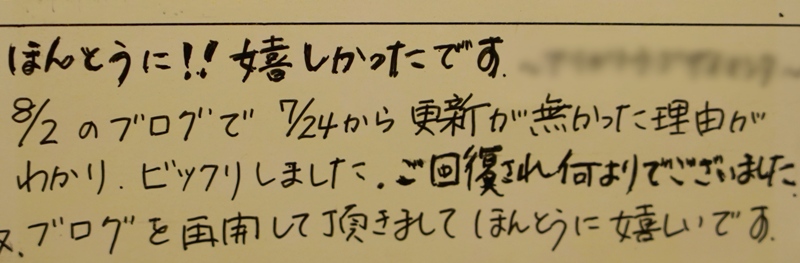 ほんとうに!! 嬉しかったです.
8/2 のブログで 7/24から 更新が無かった理由が
わかり. ビックリしました. ご回復され何よりでございました.
又. ブログを再開して頂きまして ほんとうに嬉しいです.